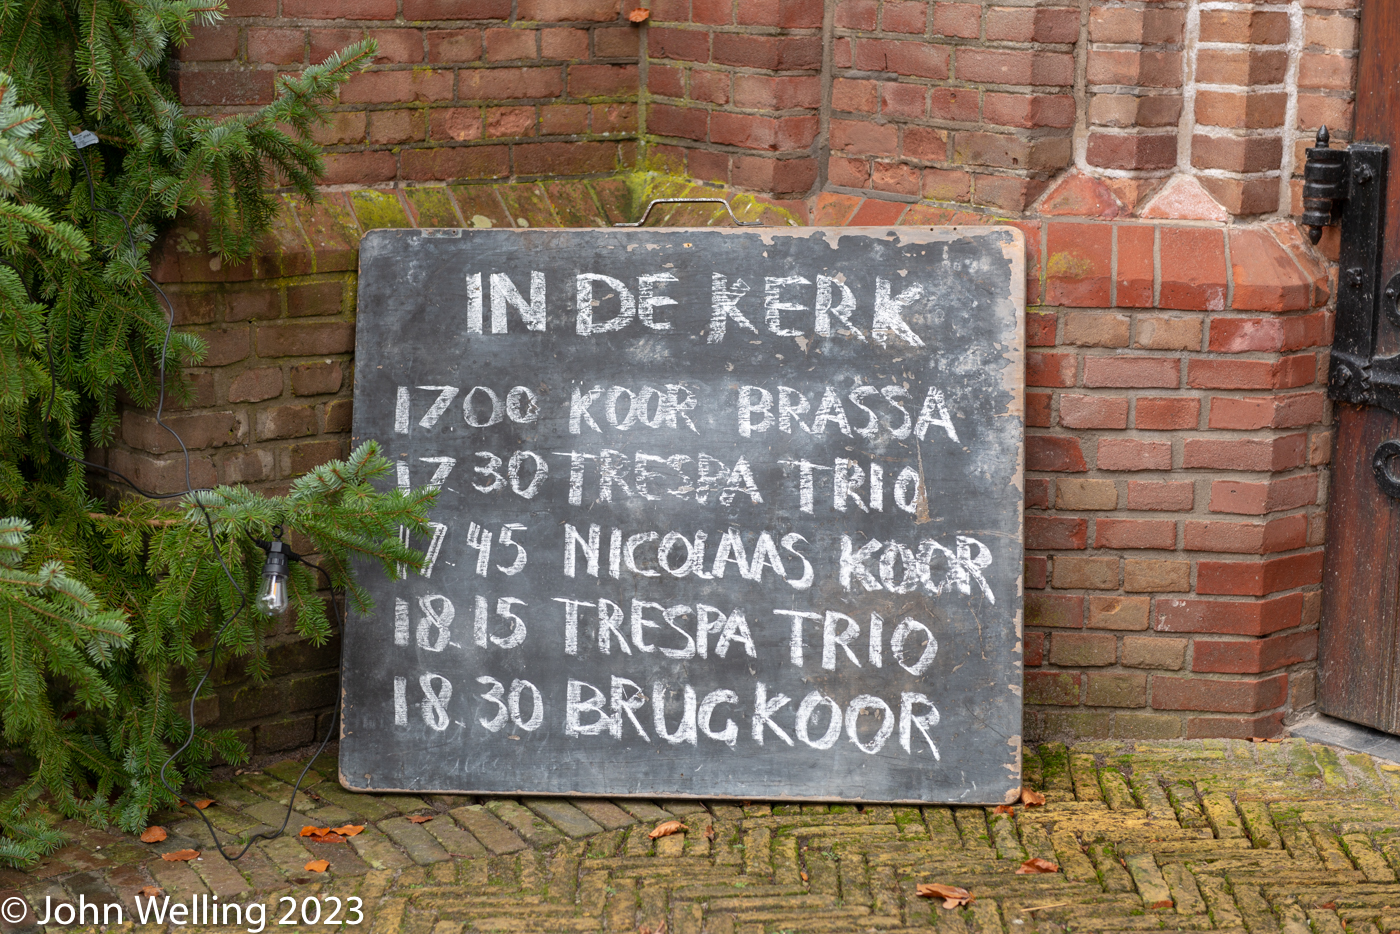 IN DE KERK
1700 KOOR BRASSA
17.30 TRESPA TRIO
17.45 NICOLAAS KOOR
18.15 TRESPA TRIO
18.30 BRUGKOOR
© John Welling 2023